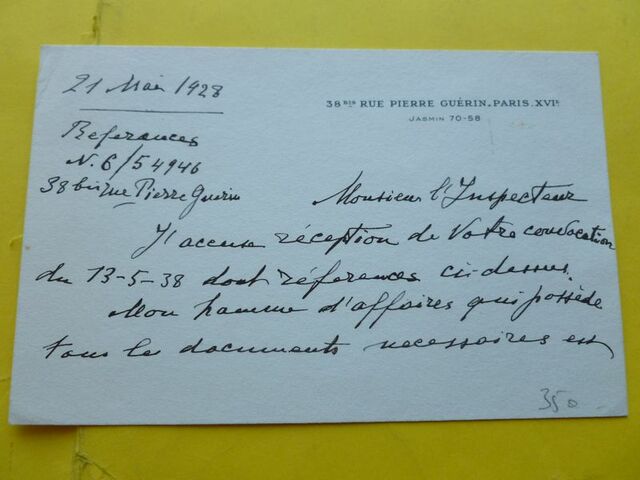 21 Mai 1928
38 BIS RUE PIERRE GUÉRIN. PARIS. XVIe
JASMIN 70-58
Referances
N. 6/54946
38 bis rue Pierre Guerin
Monsieur l'Inspecteur
J'accuse réception de Votre convocation
du 13-5-38 dont références ci-dessus.
Mon homme d'affaires qui possède
tous les documents necessaires est
350